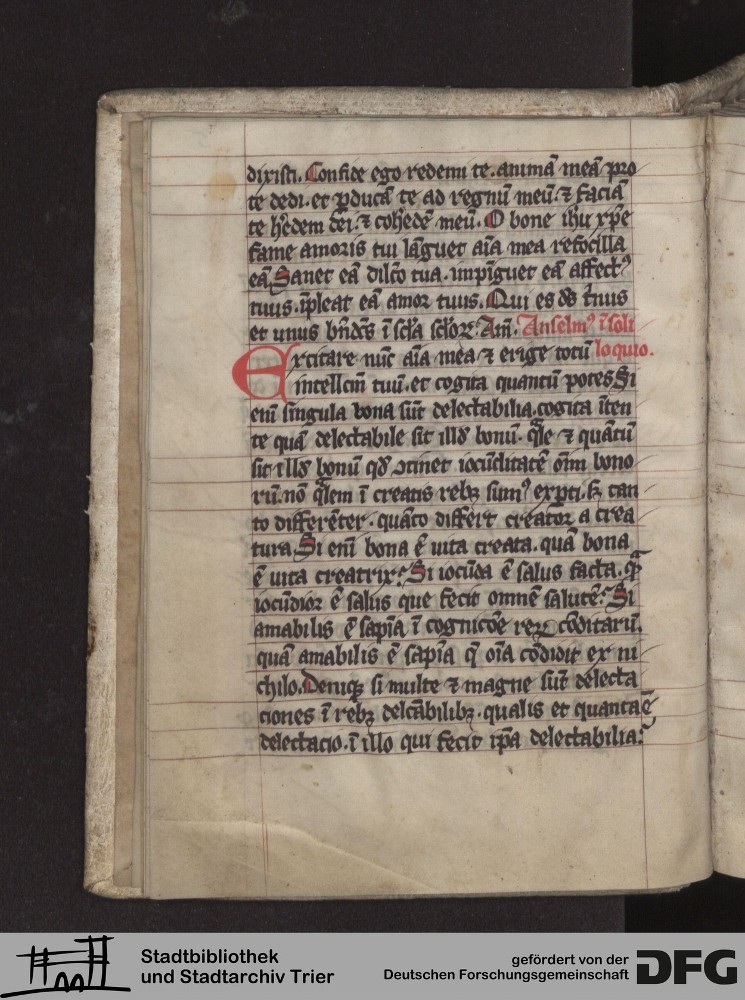 dixisti. Confide ego redemi te. animā meā pro
te dedi. et ꝑducā te ad regnū meū. ⁊ faciā
te h'edem dei. ⁊ coh'edē meū. O bone ih'u xp̄e
fame amoris tui lāguet aīa mea refocilla
eā Sanet eā dilc̄o tua. impīguet eā affectꝰ
tuus. īpleat eā amor tuus. Qui es ds̄ t̄nus
et unus bn̄dc̄s ī sc̄l'a sc̄l'oꝝ. Am̄. Anselmꝰ ī soli
loquio.
Excitare nūc aīa mea ⁊ erige totū
intellcm̄ tuū. et cogita quantū potes Si
eni̅ sīngula bona sūt delectabilia. cogita īten
te quā delectabile sit illd̄ bonū. q̄le ⁊ quātū
sit illd̄ bonū qd̄ ↄtinet iocūditatē om̄i bono
rū. nō q̄lem ī creatis rebꝫ sumꝰ exꝑti. sꝫ tan
to differēter. quāto differt creator a crea
tura. Si eni̅ bona ē uita creata. quā bona
ē uita creatrix? Si iocūda ē salus facta. q̄
iocūdior ē salus que fecit omnē salutē? Si
amabilis ē sapīa ī cognicōe reꝝ cōditarū.
quā amabilis ē sapīa q̄ oīa cōdidit ex ni
chilo. Deniqꝫ si multe ⁊ magne sūt delecta
ciones ī rebꝫ delcābilibꝫ. qualis et quanta ē
delectacio. ī illo qui fecit ip̄a delectabilia?
Stadtbibliothek
und Stadtarchiv Trier
gefördert von der
Deutschen Forschungsgemeinschaft
DFG